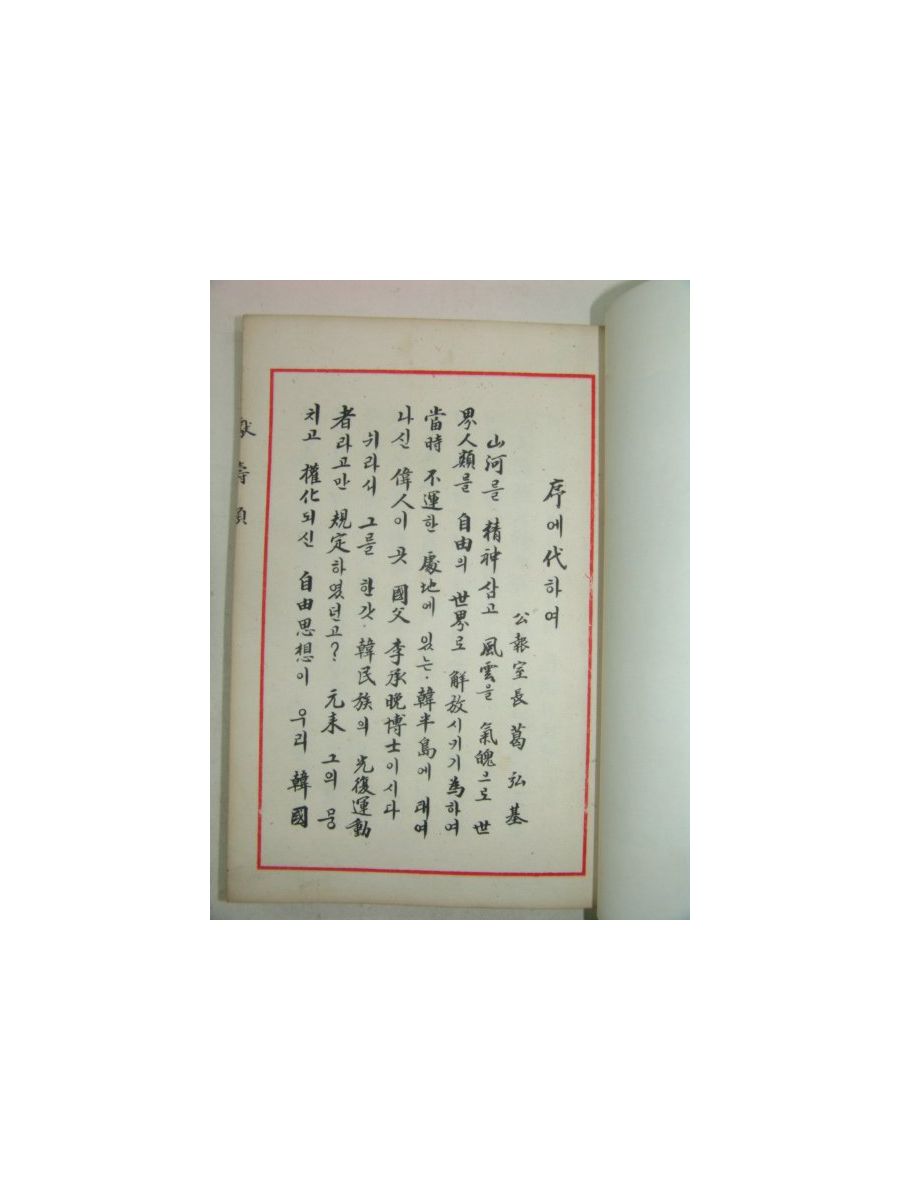 序에代하여
公報室長 葛弘基
山河를 精神삼고 風雲을 氣魄으로 世
界人類를 自由의 世界로 解放시키기爲하여
當時 不運한 處地에 있는·韓半島에 태여
나신 偉人이 곳 國父 李承晩博士이시다
뉘라서 그를 한갓·韓民族의 光復運動
者라고만 規定하였던고? 元来 그의 뭉
치고 權化되신 自由思想이 우리 韓國
獻壽頌